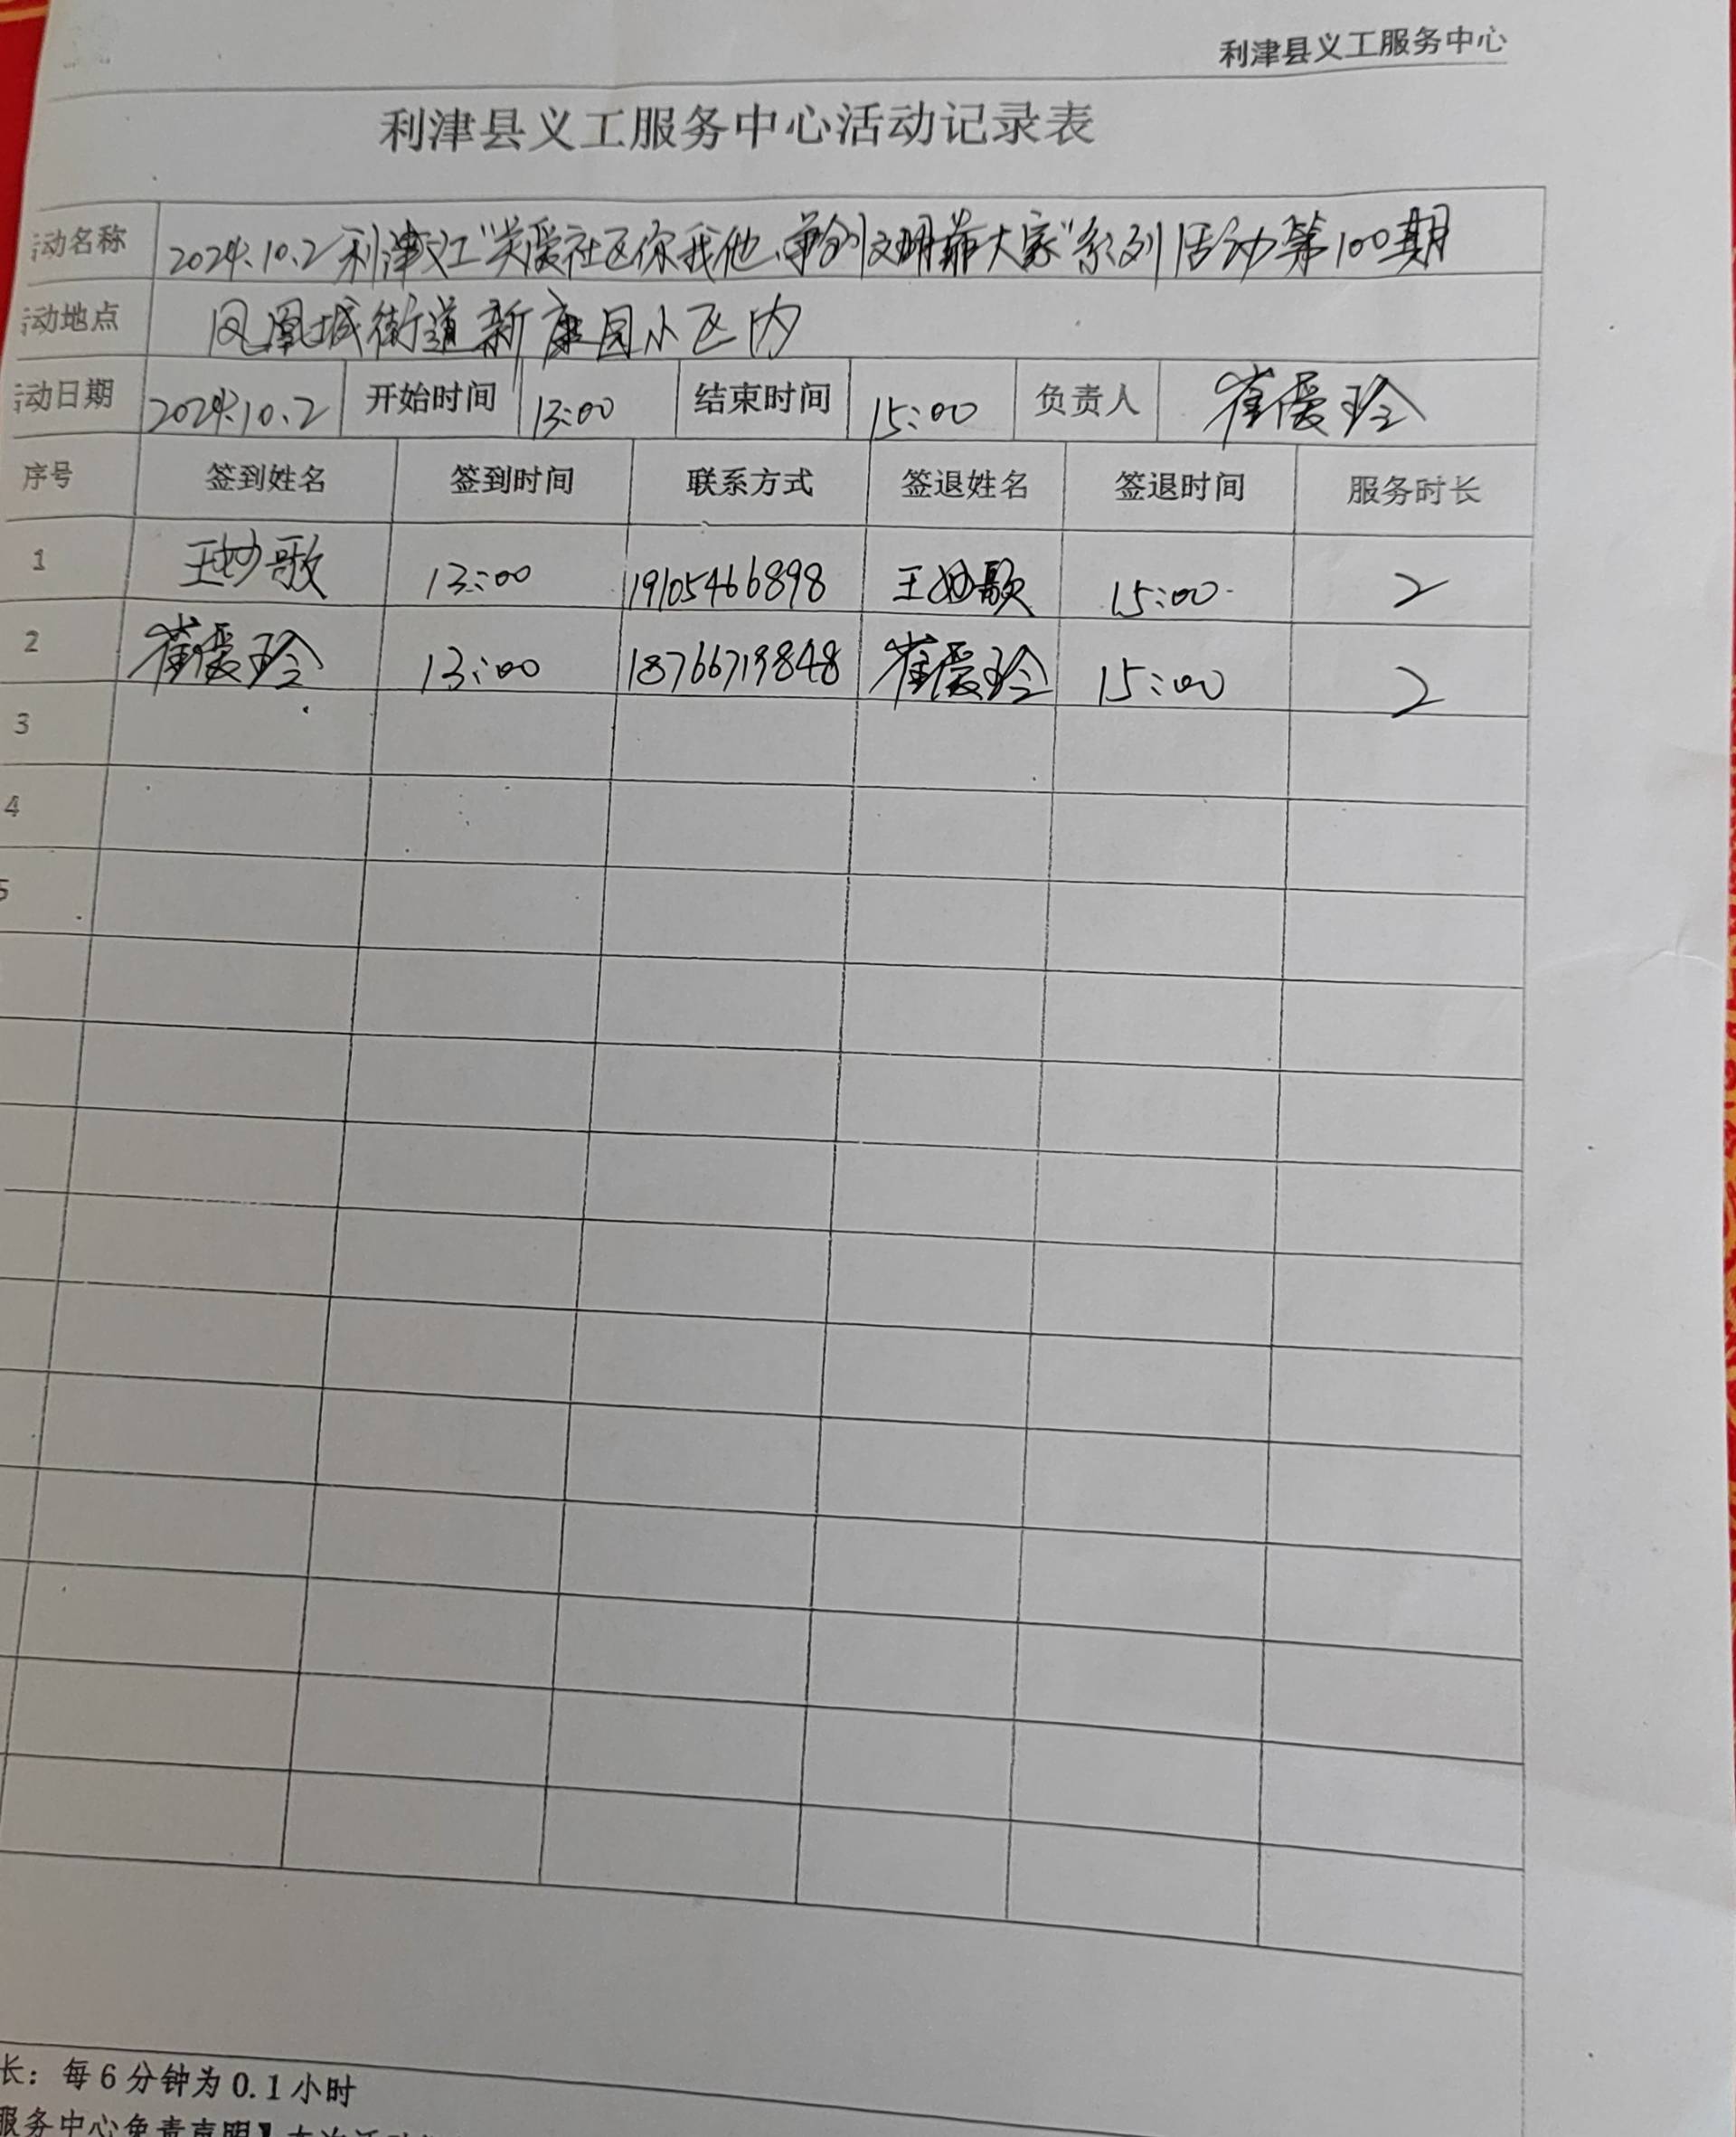 利津县义工服务中心
利津县义工服务中心活动记录表
活动名称 2024.10.2利津义工"关爱社区你我他、争创文明靠大家"系列活动第100期
活动地点 凤凰城街道新康园小区内
活动日期 2024.10.2 开始时间 13:00 结束时间 15:00 负责人 崔爱玲
序号 签到姓名 签到时间 联系方式 签退姓名 签退时间 服务时长
1 王妙歌 13:00 19105466898 王妙歌 15:00 2
2 崔爱玲 13:00 18766719848 崔爱玲 15:00 2
3
4
5
长：每6分钟为0.1小时
服务中心免责声明】本次活动